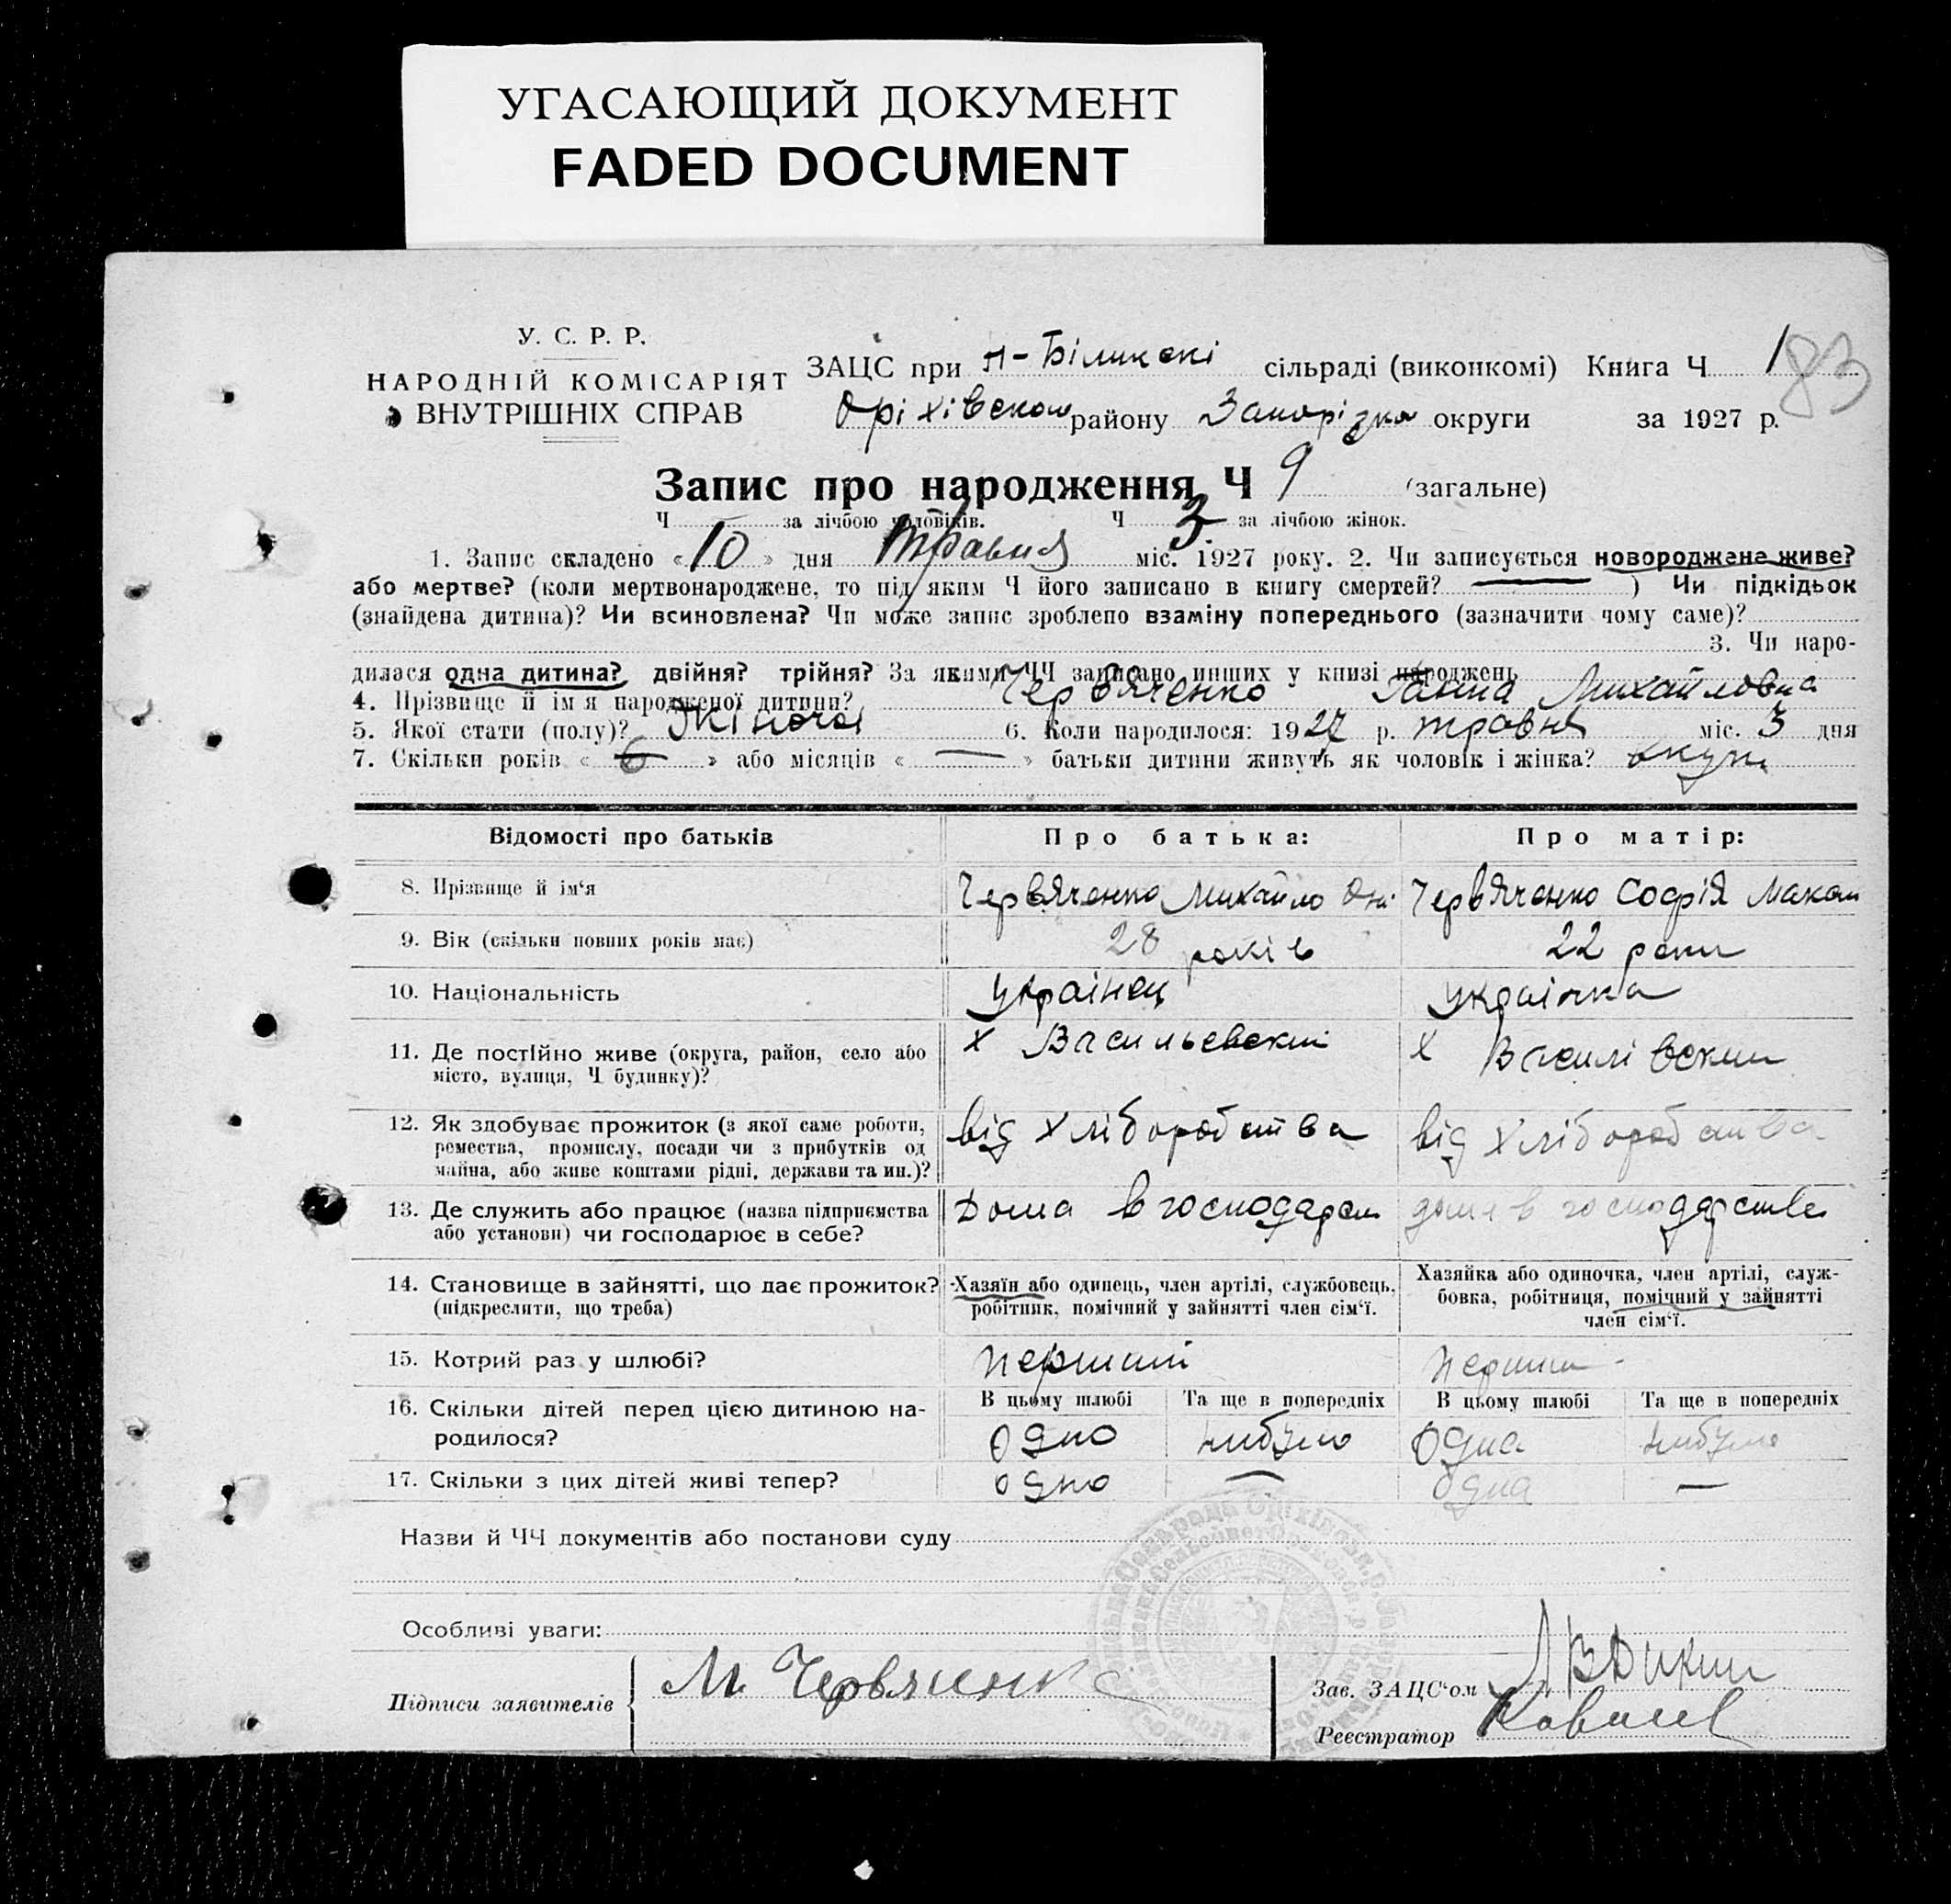 УГАСАЮЩИЙ ДОКУМЕНТ
FADED DOCUMENT
У. С. Р. Р.
НАРОДНІЙ КОМІСАРІЯТ
ВНУТРІШНІХ СПРАВ
ЗАЦС при сільраді (виконкомі) Книга Ч 1
183
Оріхівського району Запорізька округи за 1927 р.
Запис про народження Ч 9 (загальне)
Ч за лічбою чоловіків. Ч 3 за лічбою жінок.
1. Запис складено «10» дня травня міс. 1927 року. 2. Чи записується новороджене живе?
або мертве? (коли мертвонароджене, то під яким Ч його записано в книгу смертей? — ) Чи підкідьок
(знайдена дитина)? Чи всиновлена? Чи може запис зроблено взаміну попереднього (зазначити чому саме)?
3. Чи наро-
дилася одна дитина? двійня? трійня? За якими ЧЧ записано инших у книзі народжень
4. Прізвище й ім'я народженої дитини? Черв'яченко Ганна Михайловна
5. Якої стати (полу)? Жіноча 6. Коли народилося: 1927 р. травня міс. 3 дня
7. Скільки років « 6 » або місяців « — » батьки дитини живуть як чоловік і жінка?
Відомості про батьків Про батька: Про матір:
8. Прізвище й ім'я Черв'яченко Михайло Черв'яченко Софія
9. Вік (скільки повних років має) 28 років 22 роки
10. Національність українец українка
11. Де постійно живе (округа, район, село або
місто, вулиця, Ч будинку)? х Васильевский х Василівский
12. Як здобуває прожиток (з якої саме роботи,
ремества, промислу, посади чи з прибутків од
майна, або живе коштами рідні, держави та ин.)? від хліборобства від хліборобства
13. Де служить або працює (назва підприємства
або установи) чи господарює в себе? Дома в господарст дома в господарстве
14. Становище в зайнятті, що дає прожиток?
(підкреслити, що треба)
Хазяїн або одинець, член артілі, службовець,
робітник, помічний у зайнятті член сім'ї.
Хазяйка або одиночка, член артілі, служ-
бовка, робітниця, помічний у зайнятті
член сім'ї.
15. Котрий раз у шлюбі? Перший Перший
16. Скільки дітей перед цією дитиною на-
родилося?
В цьому шлюбі Та ще в попередніх В цьому шлюбі Та ще в попередніх
одно небуло одна небуло
17. Скільки з цих дітей живі тепер? одно — одна —
Назви й ЧЧ документів або постанови суду
Особливі уваги:
Підписи заявителів М. Червяченк
Зав. ЗАЦС'ом
Реєстратор